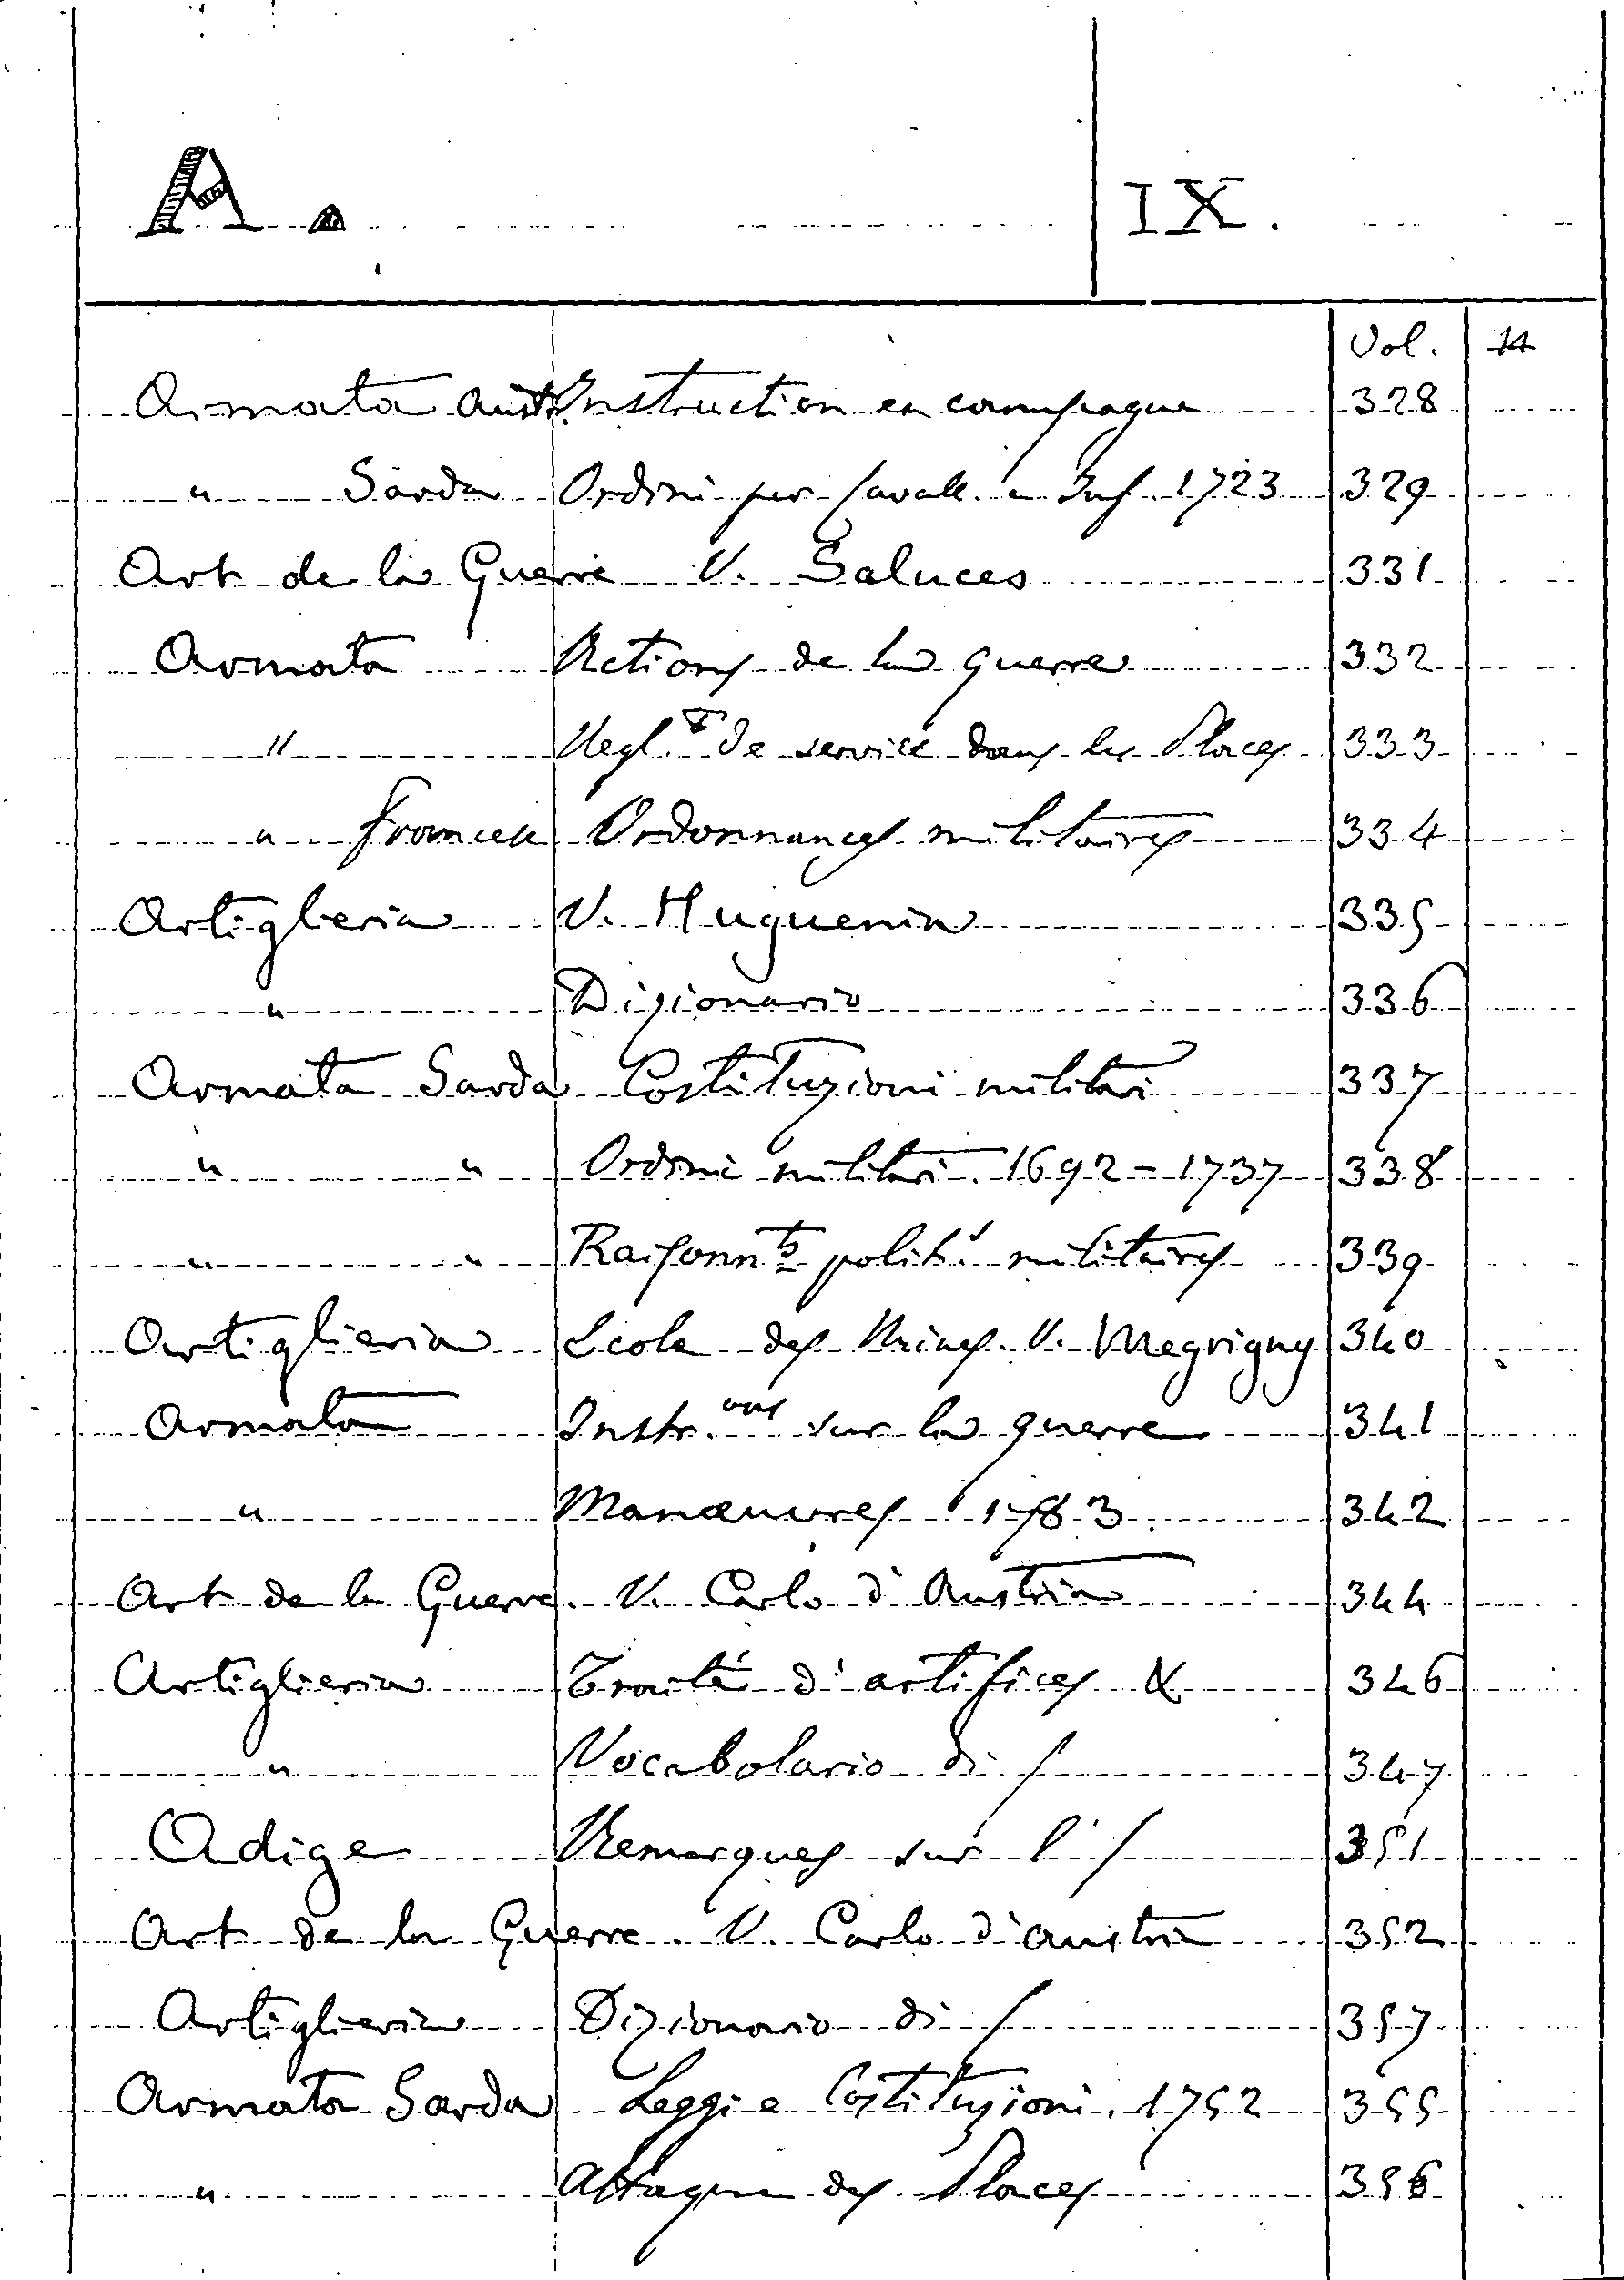 A. IX.
Vol. 14
Armata Austr. Instruction en campagne 328
" Sarda Ordini per Cavall. e Inf. 1723 329
Art de la Guerre V. Saluces 331
Armata Actions de la guerre 332
" Regl.t de service dans les Places 333
" francese Ordonnances militaires 334
Artiglieria V. Huguenin 335
" Dizionario 336
Armata Sarda Costituzioni militari 337
" " Ordini militari. 1692 - 1737 338
" " Raisonn.ts polit.s militaires 339
Artiglieria Ecole des Mines. V. Megrigny 340
Armata Instr.ons sur la guerre 341
" Manœuvres 1783. 342
Art de la Guerre. V. Carlo d'Austria 344
Artiglieria Traité d'artifices & 346
" Vocabolario di / 347
Adige Remarques sur l' / 351
Art de la Guerre. V. Carlo d'Austria 352
Artiglieria Dizionario di / 357
Armata Sarda Leggi e Costituzioni. 1752 355
" Attaque des Places 356